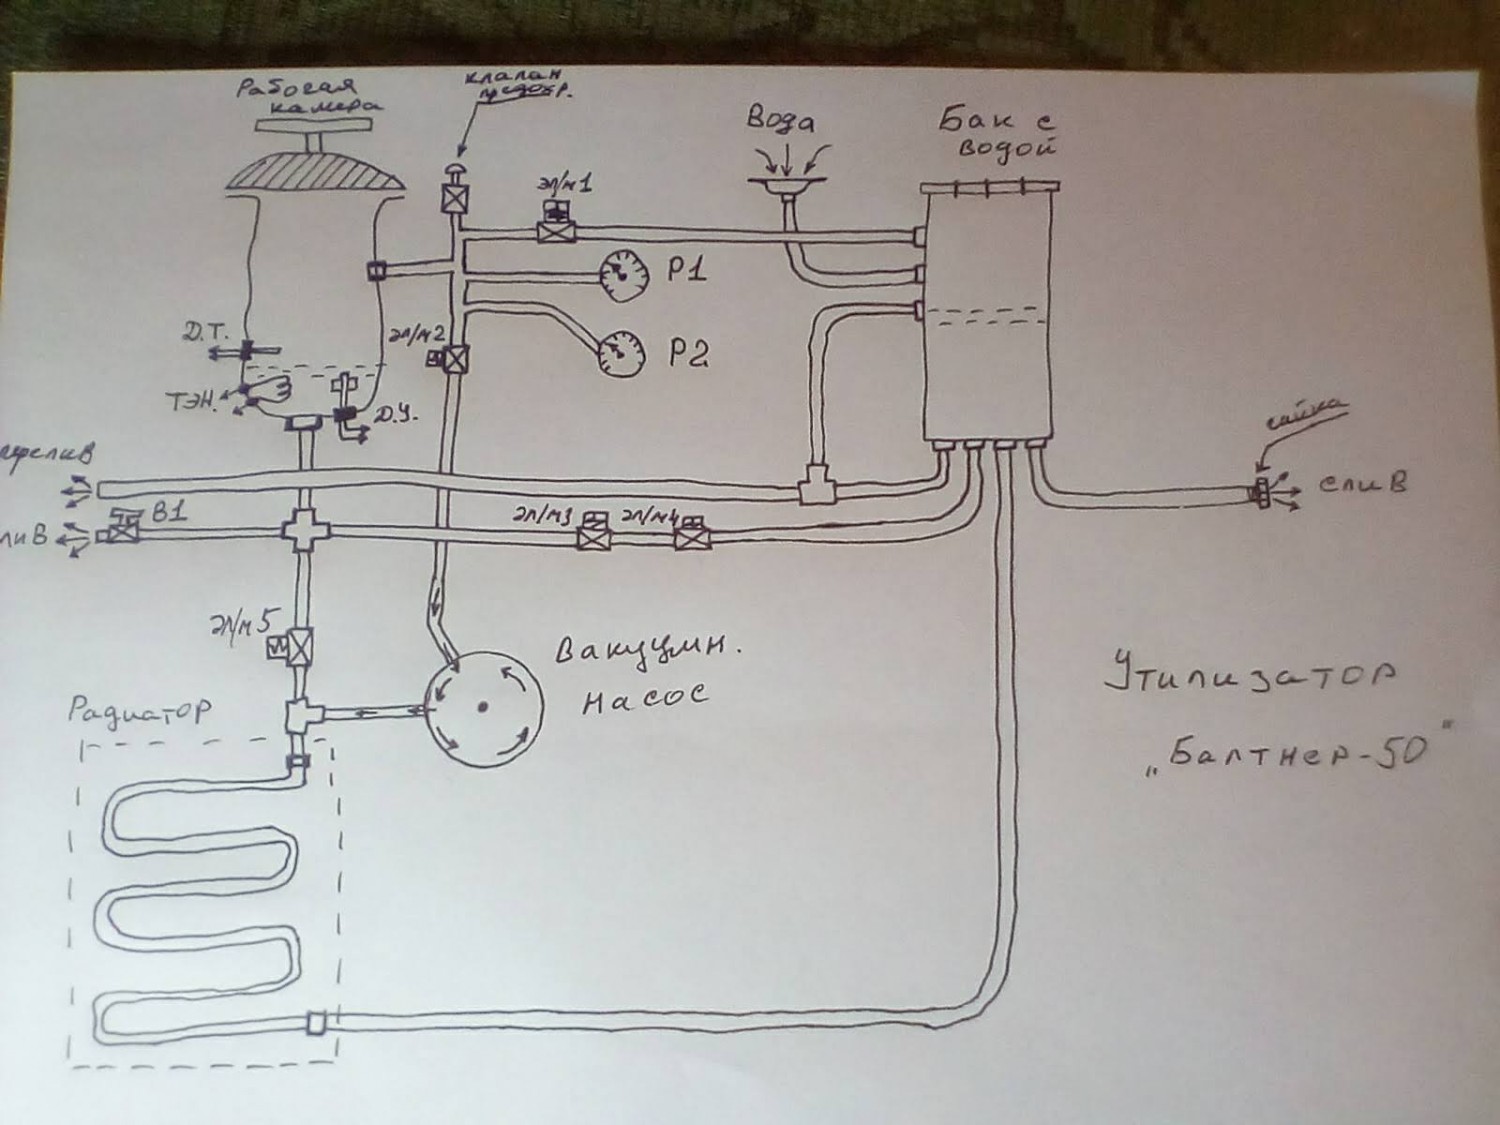 Рабочая
камера
клапан
предохр.
эл/м1
Вода
Бак с
водой
Р1
Д.Т.
эл/м2
Р2
ТЭН.
Д.У.
гайка
ерелив
слив
В1
эл/м3
эл/м4
лив
эл/м5
Вакуумн.
насос
Радиатор
Утилизатор
„Балтнер-50"